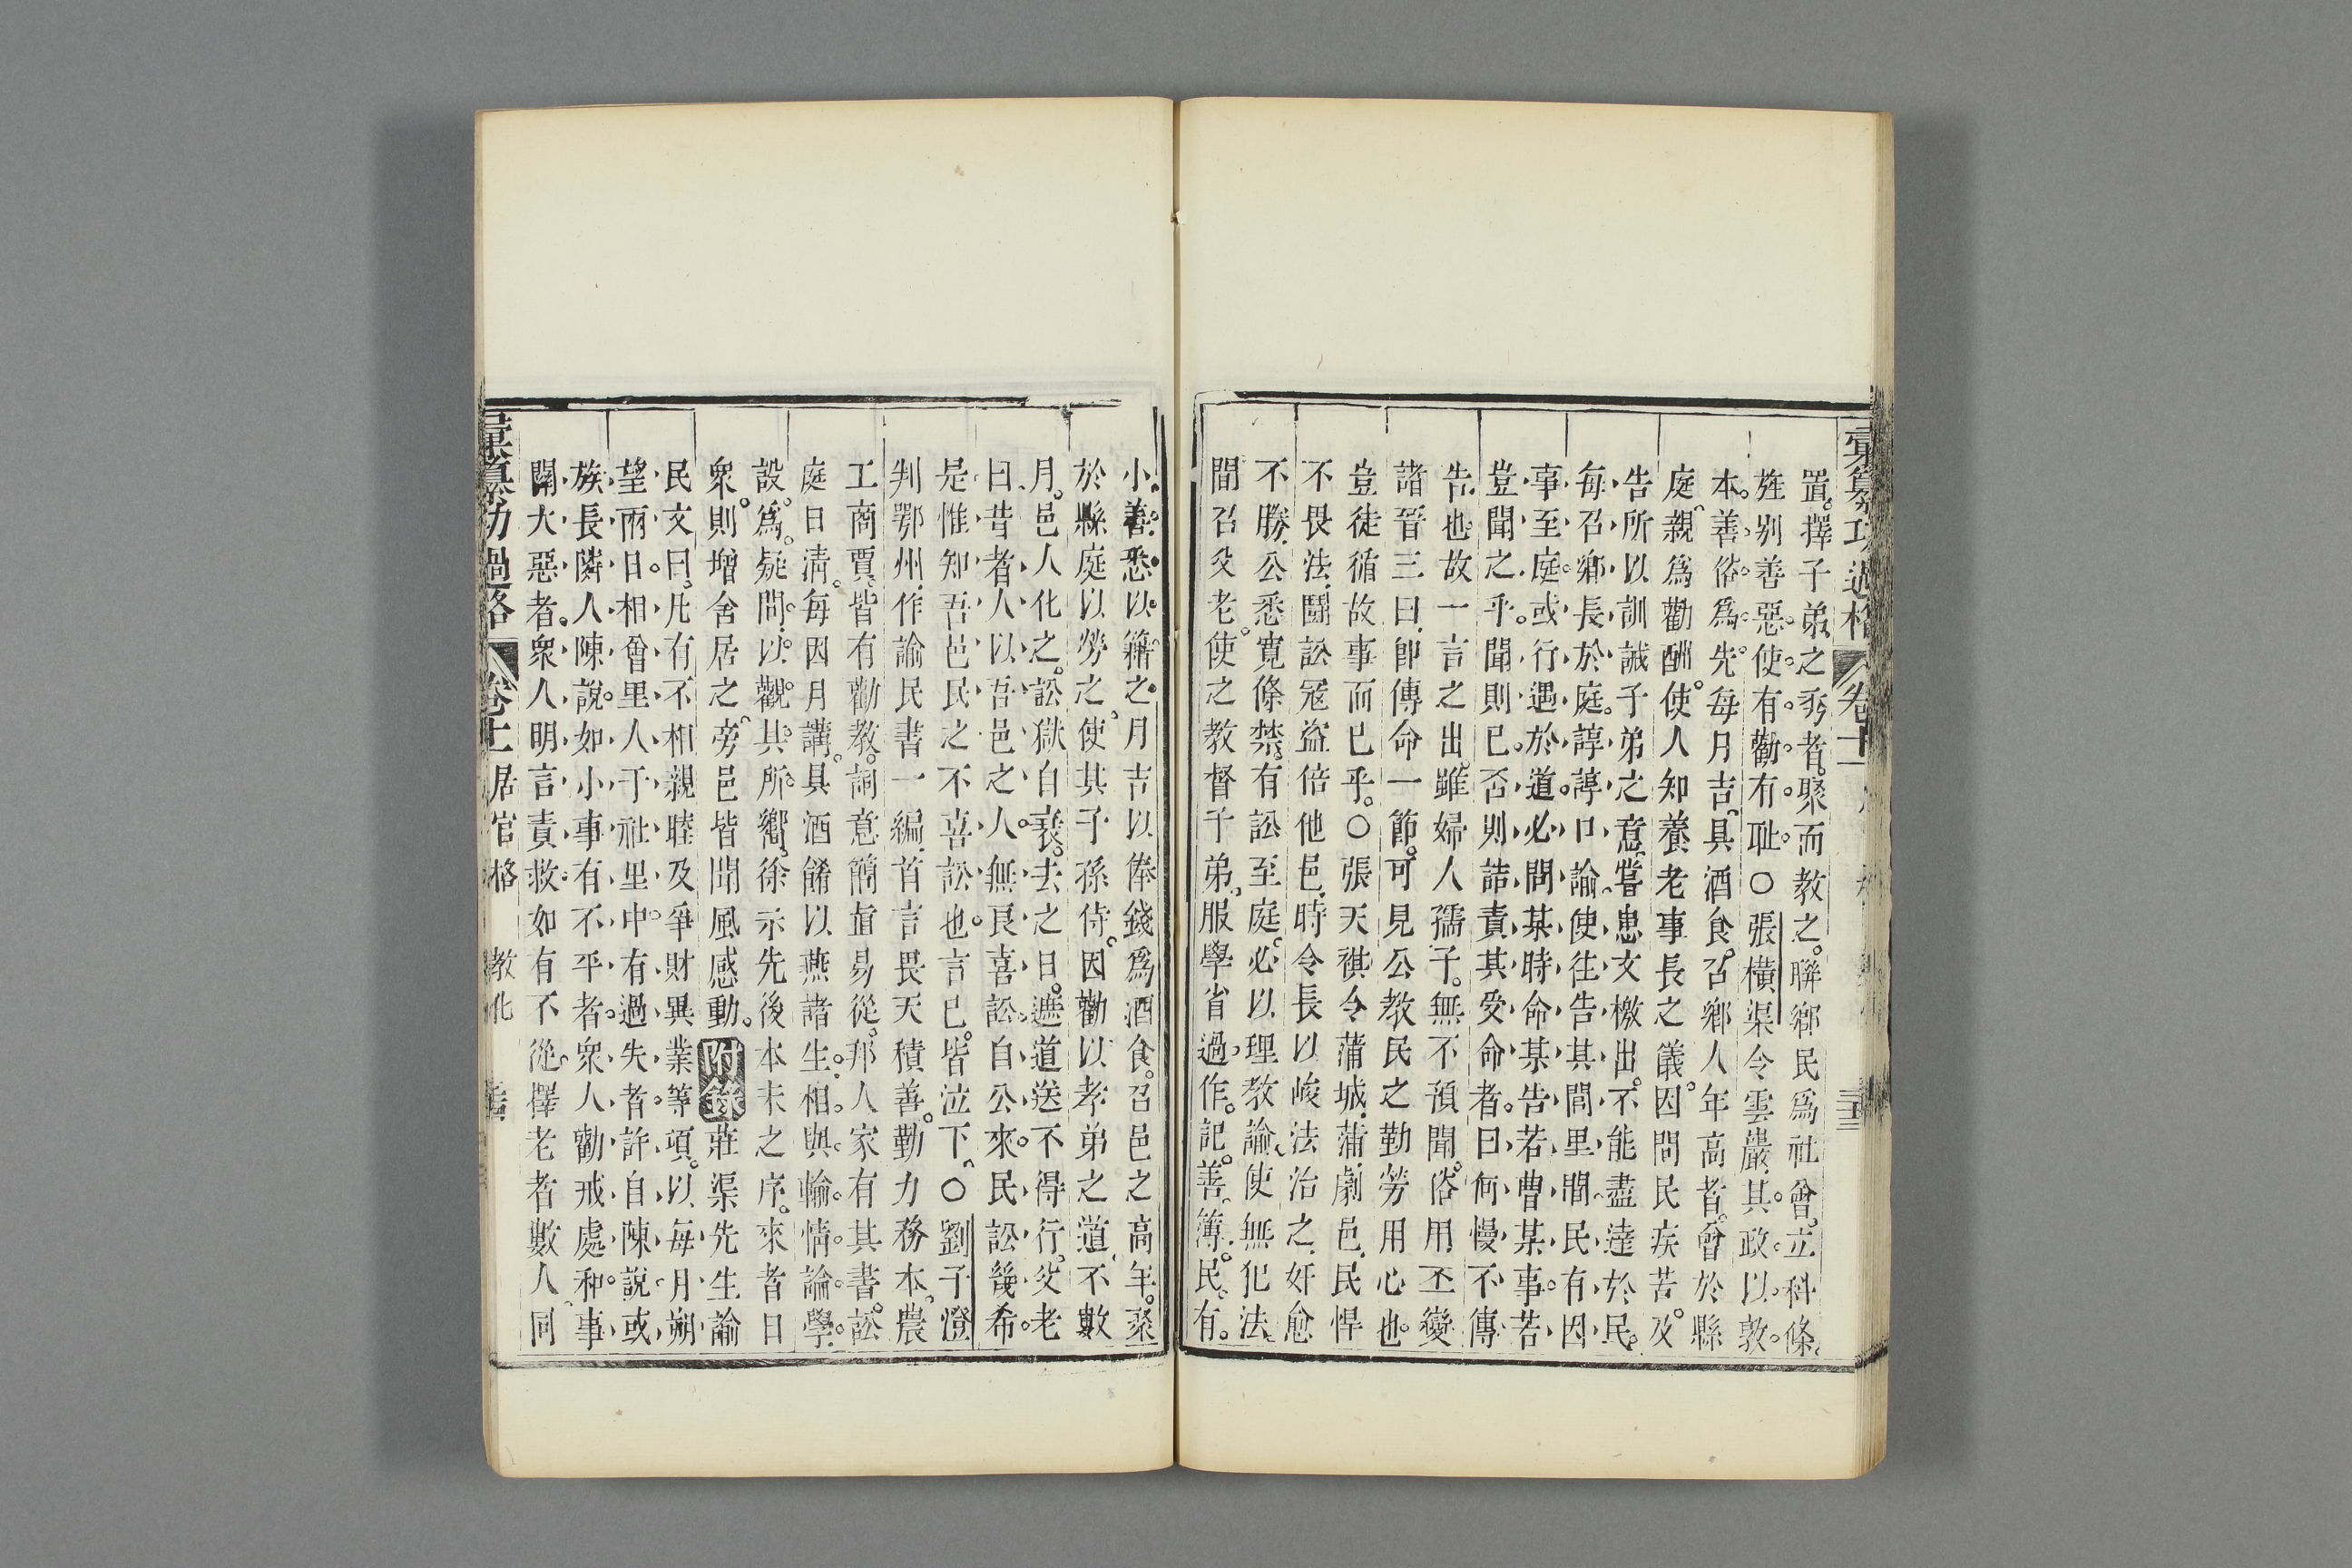 彙纂功過格 卷十一
置擇子弟之秀者聚而教之聯鄉民爲社會立科條
旌别善惡使有勸有耻〇張橫渠令雲巖其政以敦
本善俗爲先每月吉具酒食召鄉人年高者會於縣
庭親爲勸酬使人知養老事長之儀因問民疾苦及
告所以訓誡子弟之意嘗患文檄出不能盡達於民
每召鄉長於庭諄諄口諭使往告其閭里間民有因
事至庭或行遇於道必問某時命某告若曹某事若
豈聞之乎聞則已否則詰責其受命者曰何慢不傳
告也故一言之出雖婦人孺子無不預聞俗用丕變
諸晉三曰卽傳命一節可見公教民之勤勞用心也
豈徒循故事而已乎〇張天祺令蒲城蒲劇邑民悍
不畏法鬪訟寇盜倍他邑時令長以峻法治之奸愈
不勝公悉寬條禁有訟至庭必以理教諭使無犯法
間召父老使之教督子弟服學省過作記善簿民有
小善悉以籍之月吉以俸錢爲酒食召邑之高年聚
於縣庭以勞之使其子孫侍因勸以孝弟之道不數
月邑人化之訟獄自衰去之日遮道送不得行父老
曰昔者人以吾邑之人無良喜訟自公來民訟幾希
是惟知吾邑民之不喜訟也言已皆泣下〇劉子澄
判鄂州作諭民書一編首言畏天積善勤力務本農
工商賈皆有勸教詞意簡直易從邦人家有其書訟
庭日清每因月講具酒餚以燕諸生相與輸情論學
設爲疑問以觀其所嚮徐示先後本末之序來者日
衆則增舍居之旁邑皆聞風感動附錄莊渠先生諭
民文曰凡有不相親睦及爭財異業等項以每月朔
望兩日相會里人于社里中有過失者許自陳說或
族長隣人陳說如小事有不平者衆人勸戒處和事
關大惡者衆人明言責救如有不從擇老者數人同
彙纂功過格 卷十一 居官格 教化